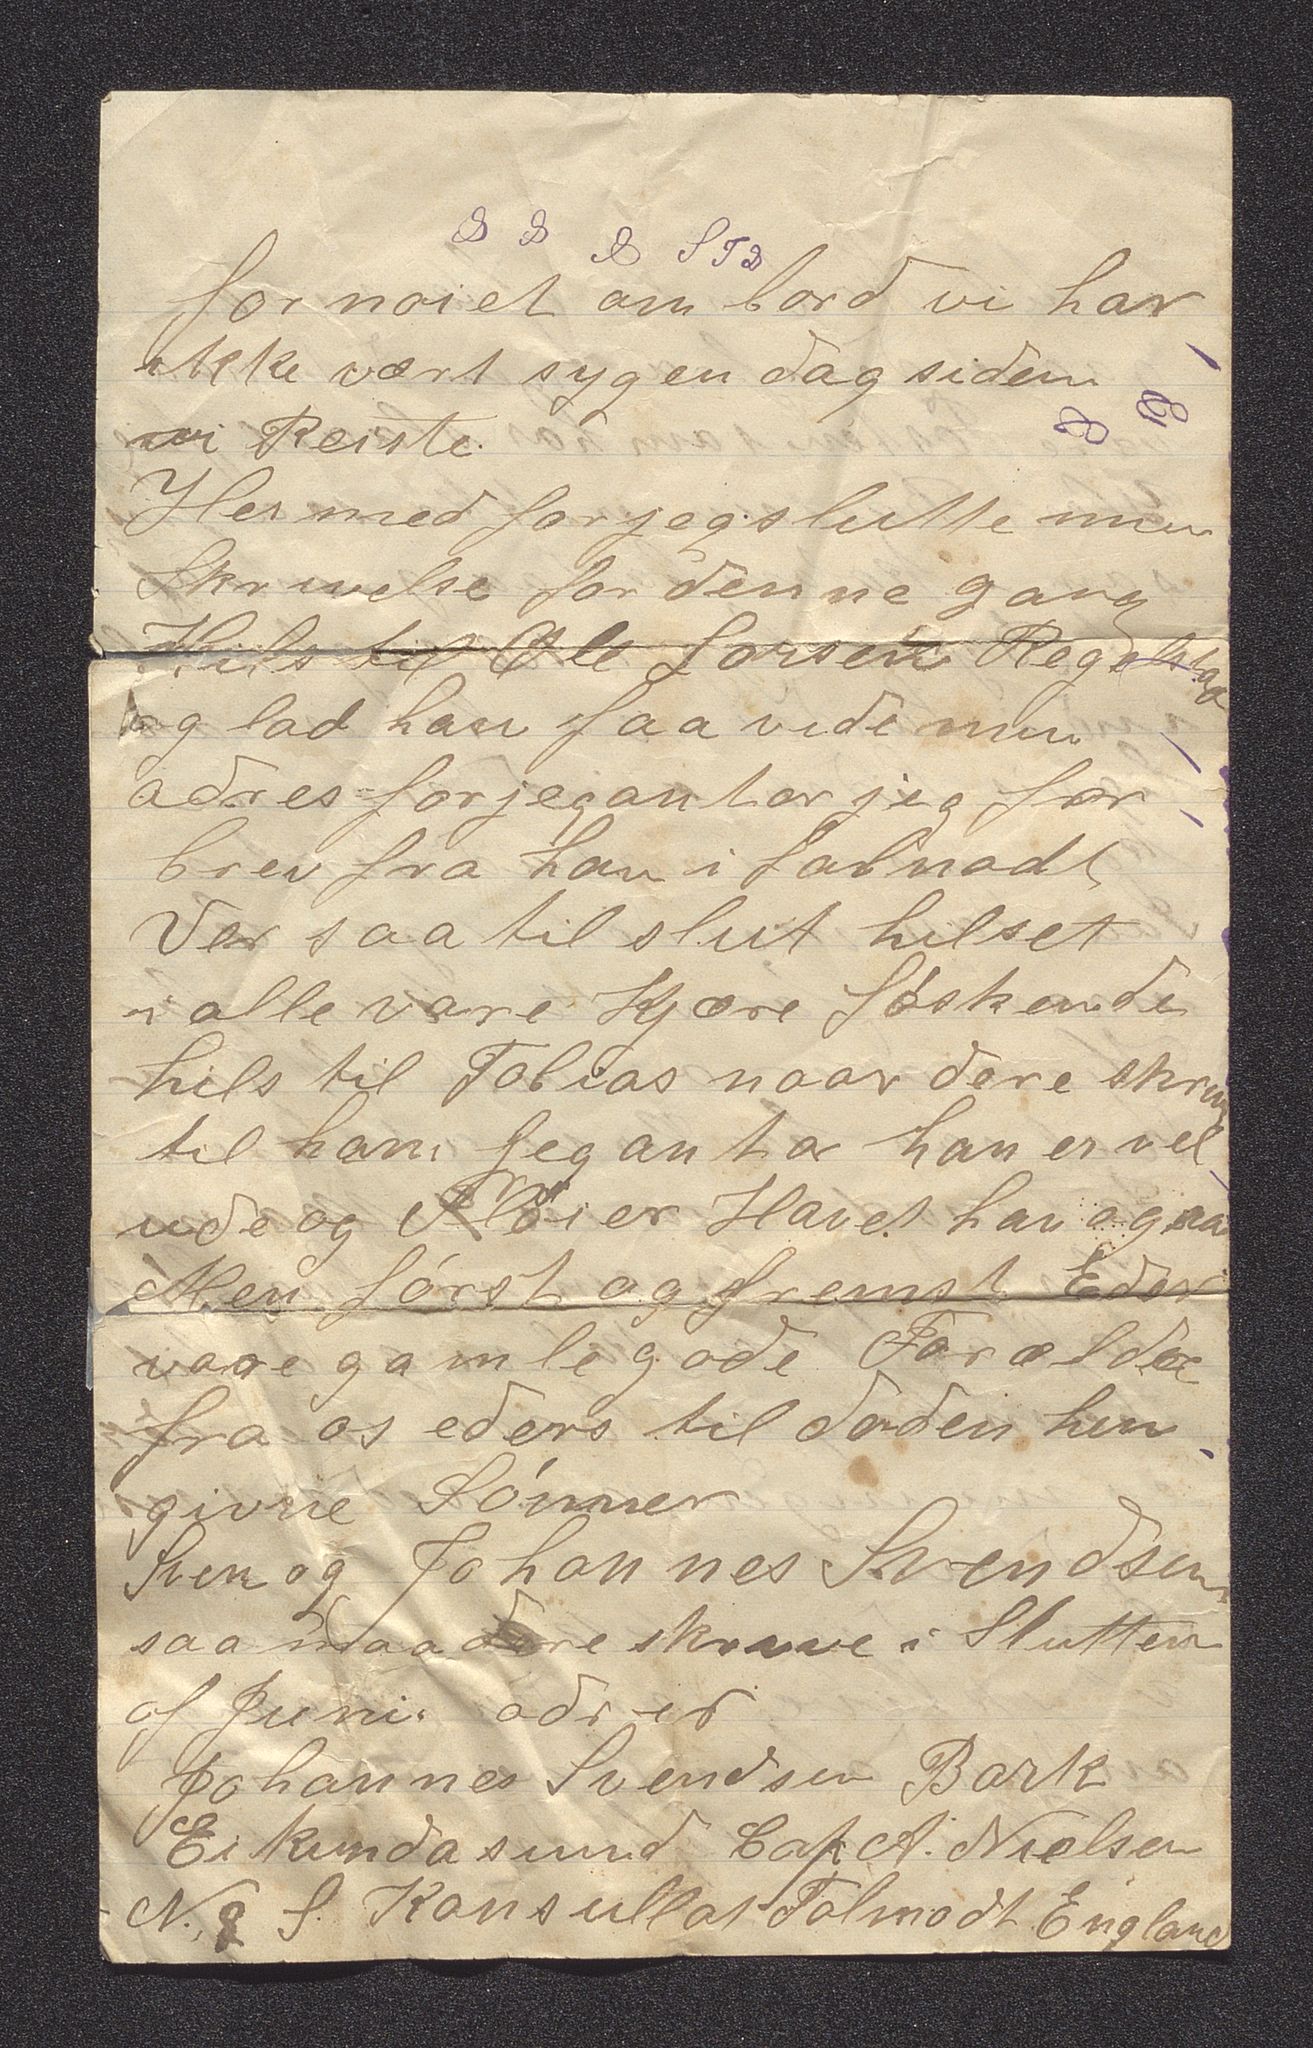 S T D
fornøiet om bord vi har
ikke vært syg en dag siden
vi Reiste.
Her med for jeg slutte min
Skrivelse for denne gang
Hils til Ole Larsen Regelstad
og lad han faa vide min
adres for jeg antar jeg far
brev fra han i Falmodt
Ver saa til slut hilset
i alle vare Kjære Søskende
hils til Tobias naar dere skriv
til ham Jeg antar han er vel
ude og Pløier Havet han ogsaa
Men først og fremst Eder
vare gamle gode Forældre
fra os eders til døden hen
givne Sønner
Sven og Johannes Svendsen
saa maa dere skrive i Slutten
af Juni. adr er
Johannes Svendsen Bark
Eikundasund Capt A. Nielsen
N. & S. Konsullat Falmodt England